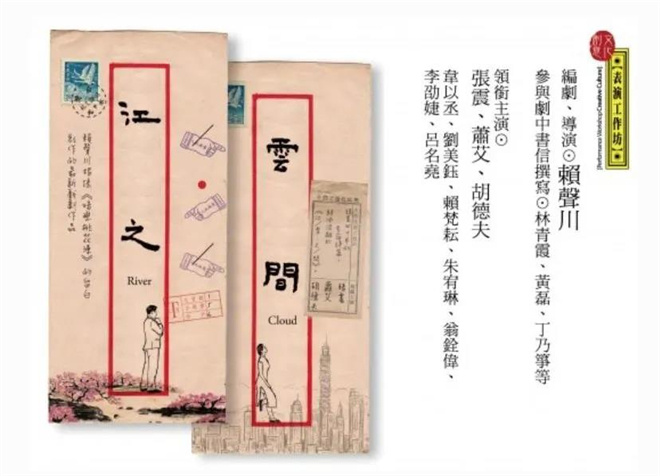 文化創意
【表演工作坊】
(Performance Workshop)
編劇、導演⊙賴聲川
參與劇中書信撰寫⊙林青霞、黃磊、丁乃箏等
領銜主演⊙
張震、蕭艾、胡德夫
韋以丞、劉美鈺、賴梵耘、朱宥琳、翁銓偉、
李劭婕、呂名堯
江雲
之間
River
Cloud
張震
蕭艾
胡德夫
賴聲川接續《暗戀桃花源》的舞台
創作的最新戲劇作品